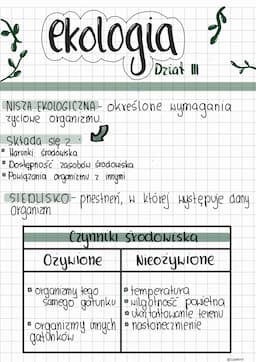 ekologia
Dział III
NISZA EKOLOGICZNA - określone wymagania
życiowe organizmu.
Składa się z:
Warunki środowiska
Dostępność zasobów środowiska
Powiązania organizmu z innymi
SIEDLISKO - przestrzeń, w której występuje dany
organizm
Czynniki środowiska
Ożywione
Nieożywione
organizmy tego
samego gatunku
organizmy innych
gatunków
temperatura
wilgotność powietrza
ukształtowanie terenu
nasłonecznienie